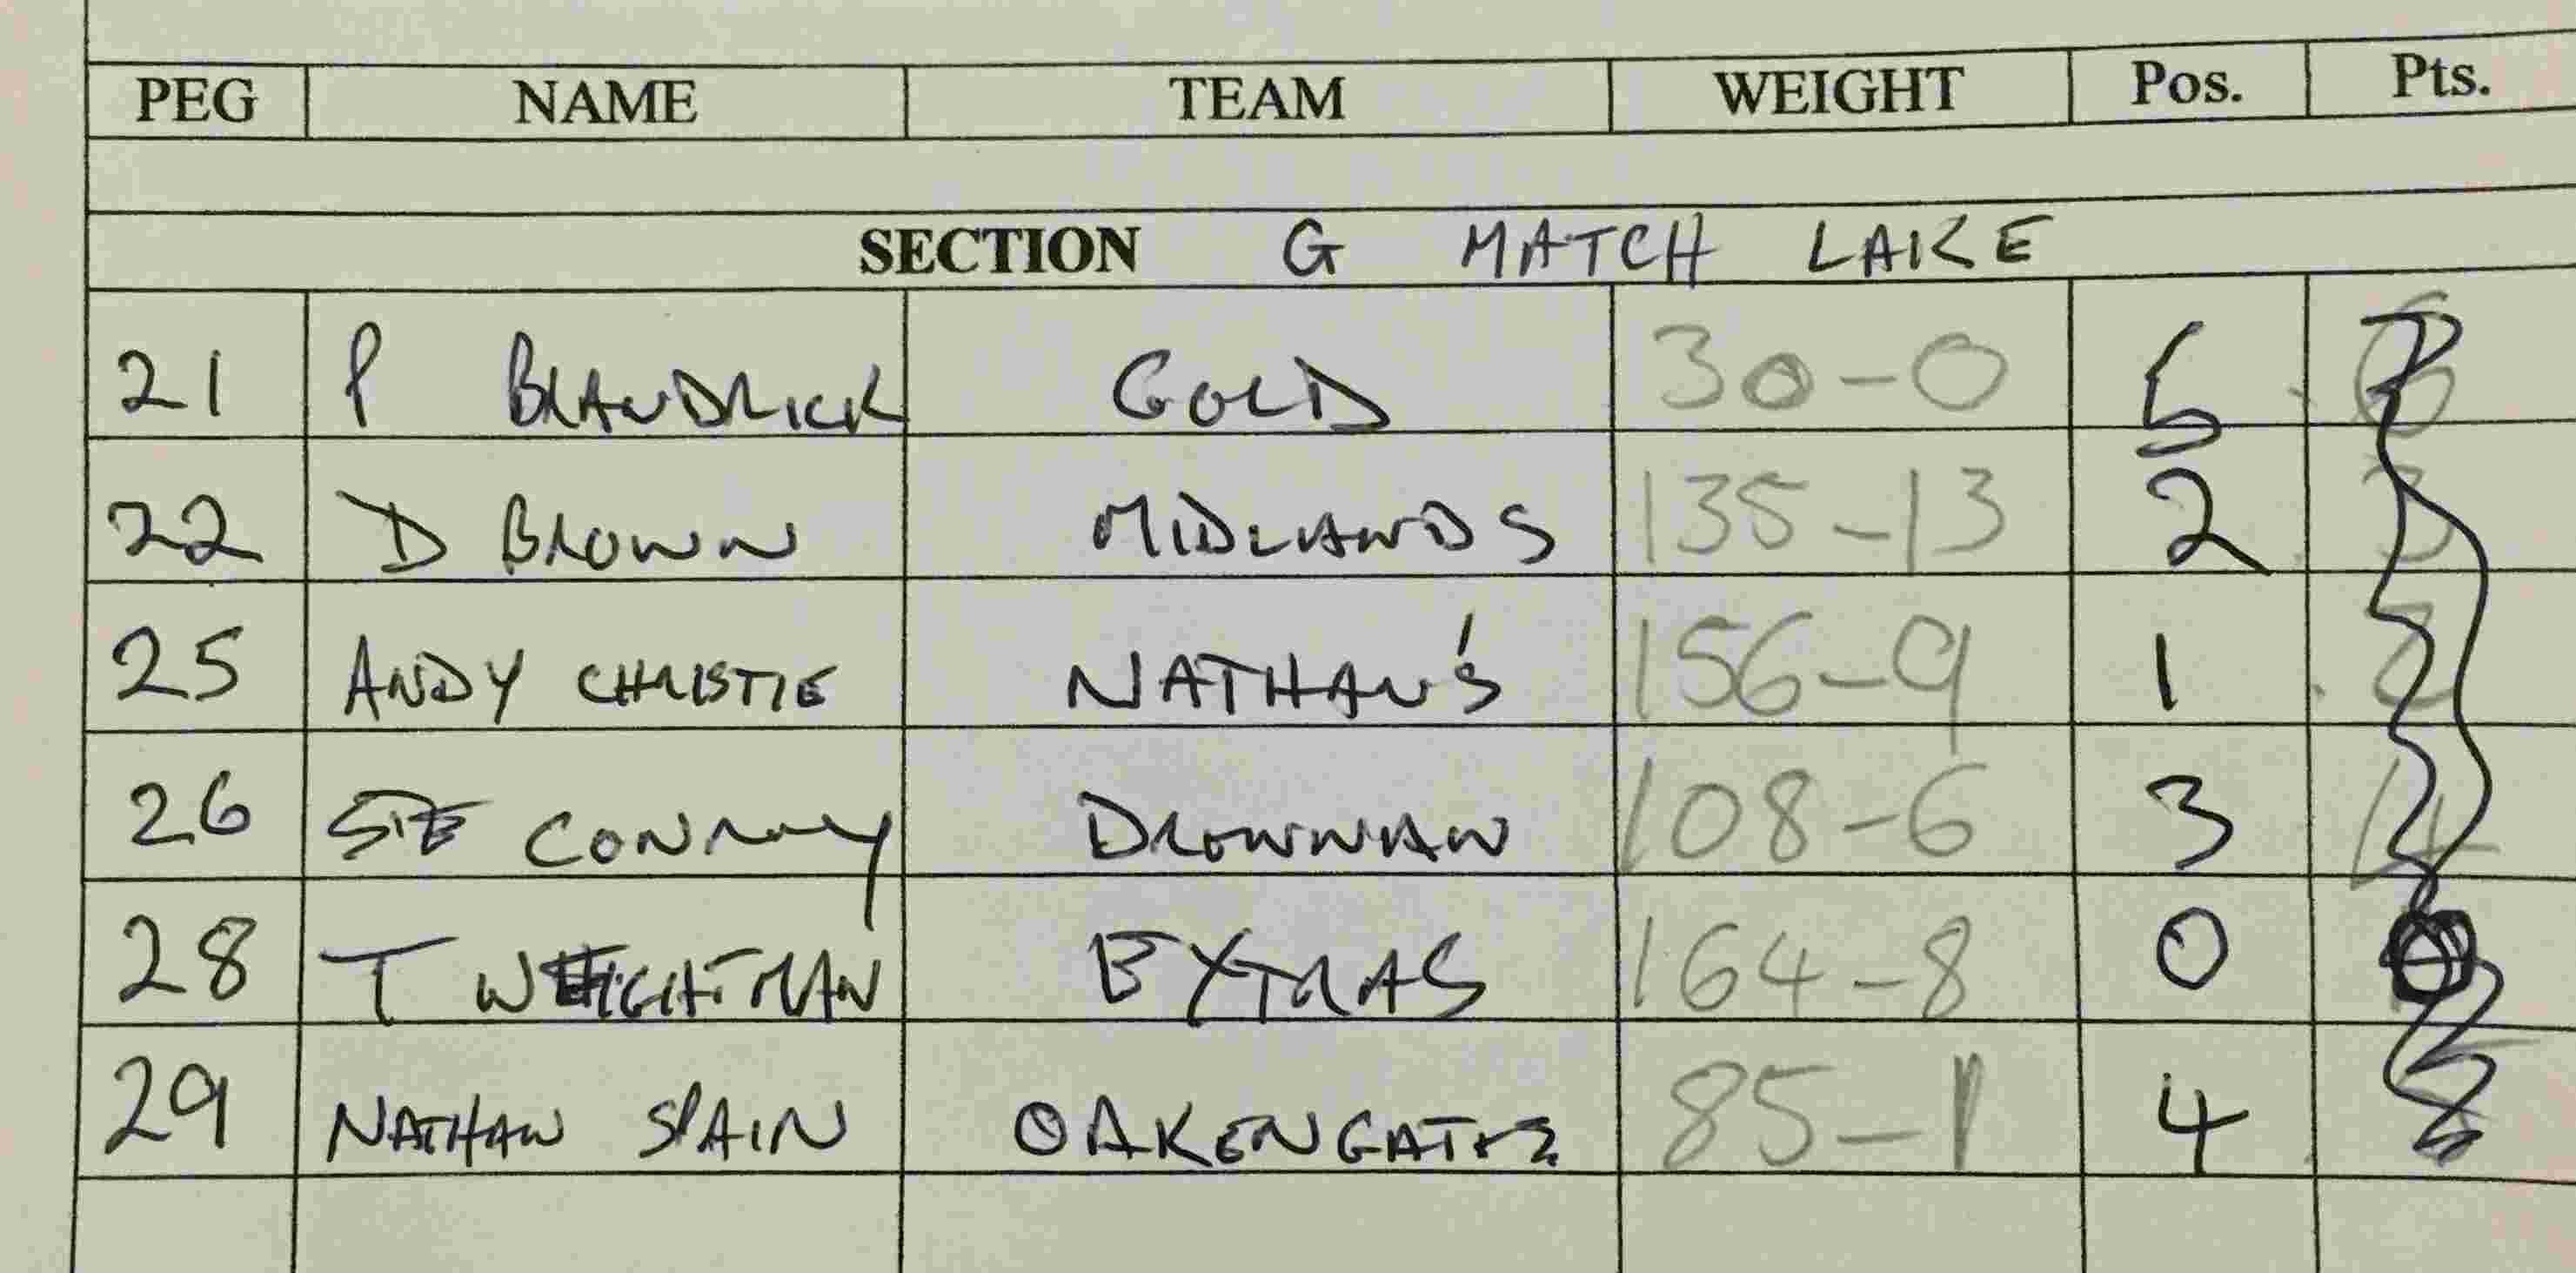 PEG NAME TEAM WEIGHT Pos. Pts.
SECTION G MATCH LAKE
21 P BRANDRICK GOLD 30-0 5
22 D BROWN MIDLANDS 135-13 2
25 ANDY CHRISTIE NATHAN'S 156-9 1
26 STE CONROY DROWNNAN 108-6 3
28 T WEIGHTMAN EXTRAS 164-8 0
29 NATHAN SPAIN OAKENGATES 85-1 4